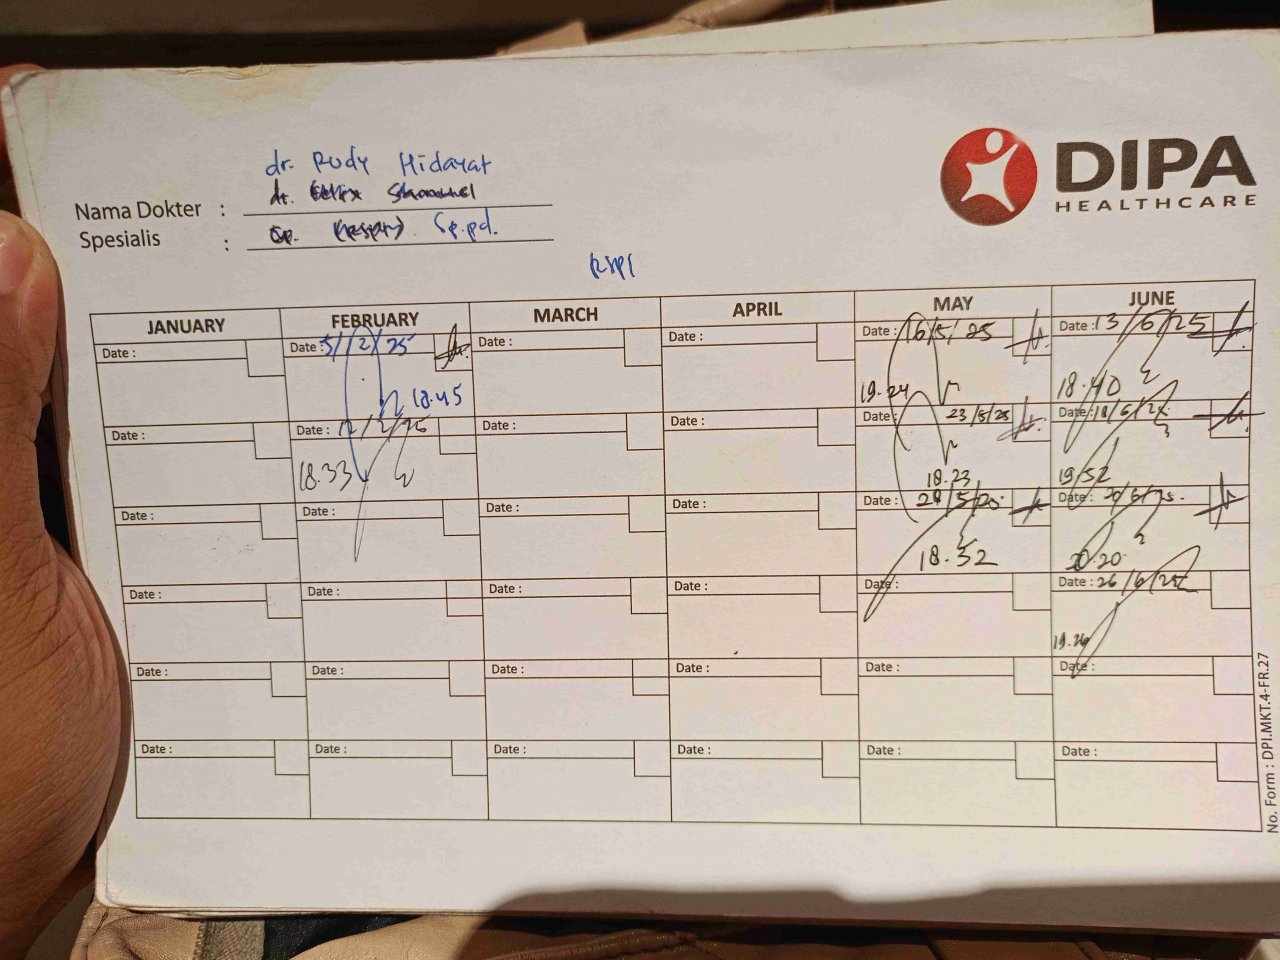 DIPA
HEALTHCARE
dr. Rudy Hidayat
Nama Dokter :
Spesialis : Sp.pd.
RSPI
JANUARY FEBRUARY MARCH APRIL MAY JUNE
Date : Date : 5/2/25 Date : Date : Date : 16/5/25 Date : 13/6/25
18.45 19.24 18.40
Date : Date : 12/2/25 Date : Date : Date : 23/5/25 Date : 18/6/25
18.33 18.23 19.52
Date : Date : Date : Date : Date : 28/5/25 Date : 20/6/25
18.52 20.20
Date : Date : Date : Date : Date : Date : 26/6/25
19.26
Date : Date : Date : Date : Date : Date :
Date : Date : Date : Date : Date : Date :
No. Form : DPI.MKT.4-FR.27